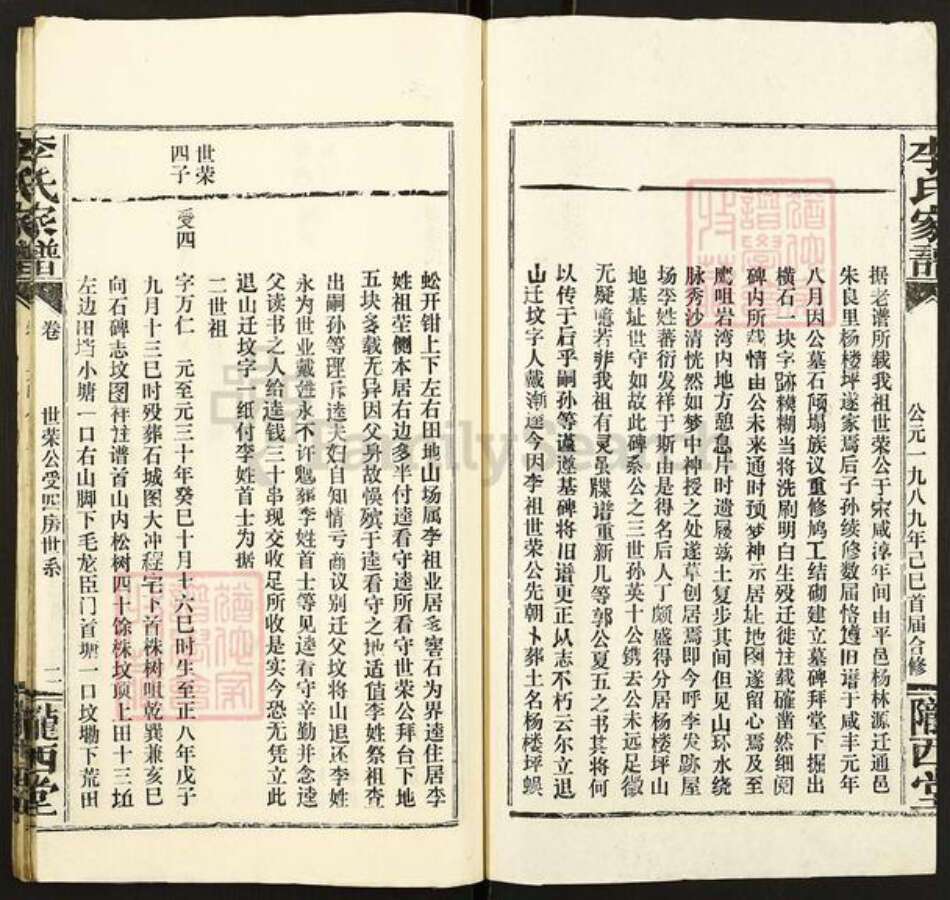 李氏家谱
公元一九八九年己巳首届合修
陇西堂
据老谱所载我祖世荣公于宋咸淳年间由平邑杨林源迁通邑
朱良里杨楼坪遂家焉后子孙续修数届恪遵旧谱于咸丰元年
八月因公墓石倾塌族议重修鸠工结砌建立墓碑拜堂下掘出
横石一块字跡糢糊当将洗刷明白生殁迁徙注载確凿然细阅
碑内所载情由公未来通时预梦神示居址地图遂留心焉及至
鹰咀岩湾内地方憩息片时遗屦兹土复步其间但见山环水绕
脉秀沙清恍然如梦中神授之处遂草创居焉即今呼李发跡屋
场李姓蕃衍发祥于斯由是得名后人丁颇盛得分居杨楼坪山
地基址世守如故此碑系公之三世孙英十公镌去公未远足徵
无疑噫若非我祖有灵虽牒谱重新几等郭公夏五之书其将何
以传于后乎嗣孙等谨遵墓碑将旧谱更正以志不朽云尔立退
山迁坟字人戴渐逵今因李祖世荣公先朝卜葬土名杨楼坪蜈
蚣开钳上下左右田地山场属李祖业居窰石为界逵住居李
姓祖茔侧本居右边多半付逵看守逵所看守世荣公拜台下地
五块多载无异因父身故悮殡于逵看守之地适值李姓祭祖查
出嗣孙等理斥逵夫妇自知情亏商议别迁父坟将山退还李姓
永为世业戴姓永不许魆葬李姓首士等见逵看守辛勤并念逵
父读书之人给逵钱三十串现交收足所收是实今恐无凭立此
退山迁坟字一纸付李姓首士为据
二世祖
世荣四子
受四
字万仁 元至元三十年癸巳十月十六巳时生至正八年戊子
九月十三巳时殁葬石城图大冲程宅下首株树咀乾巽兼亥巳
向石碑志坟图祥注谱首山内松树四十馀株坟顶上田十三坵
左边田垱小塘一口右山脚下毛龙臣门首塘一口坟塝下荒田
李氏家谱
卷
世荣公受四房世系
二
陇西堂